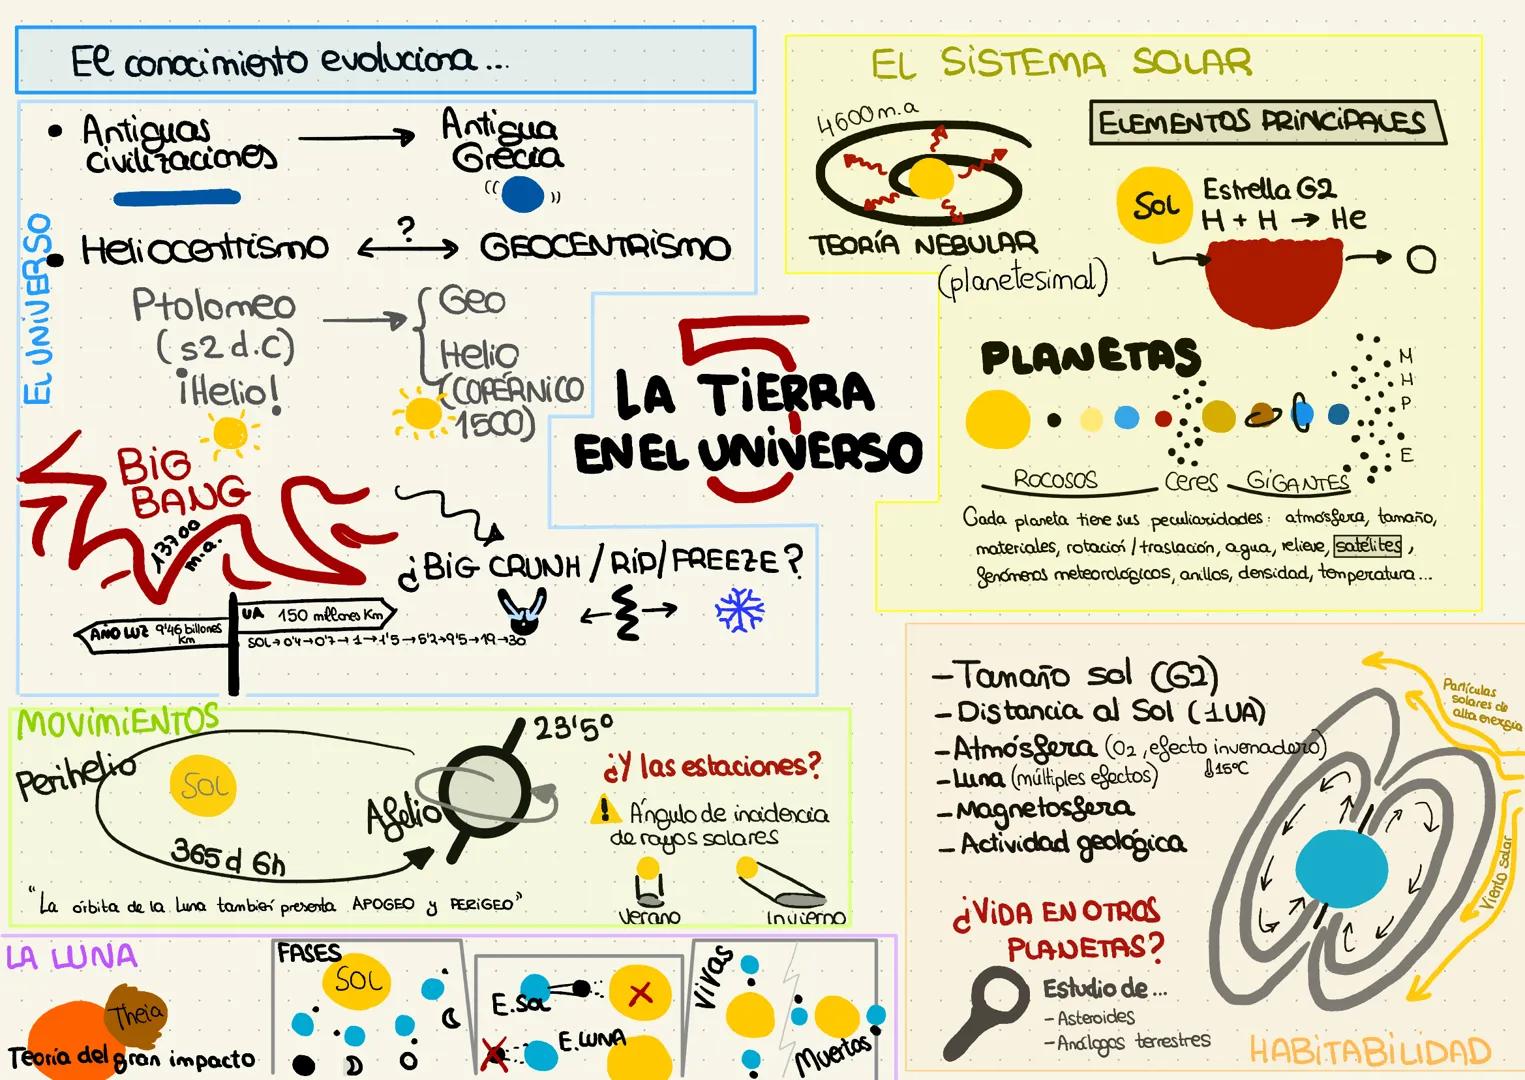 El conocimiento evoluciona...
EL UNIVERSO
• Antiguas civilizaciones → Antigua Grecia
• Heliocentrismo ←?→ GEOCENTRISMO
Ptolomeo
(s2 d.C)
¡Helio!
Geo
Helio
(COPÉRNICO
1500)
BIG
BANG
13700
m.a.
¿BIG CRUNH / RIP/FREEZE?
AÑO LUZ 9'46 billones
Km
UA 150 millones Km
SOL→0'4→0'7→1→1'5→5'2→9'5→19→30
5
LA TIERRA
EN EL UNIVERSO
EL SISTEMA SOLAR
4600 m.a
TEORÍA NEBULAR
(planetesimal)
ELEMENTOS PRINCIPALES
SOL
Estrella G2
H + H → He
PLANETAS
M
H
P
E
ROCOSOS
Ceres
GIGANTES
Cada planeta tiene sus peculiaridades: atmósfera, tamaño,
materiales, rotación / traslación, agua, relieve, satélites,
fenómenos meteorológicos, anillos, densidad, temperatura...
MOVIMIENTOS
Perihelio
SOL
Afelio
23'5°
365 d 6h
"La órbita de la Luna también presenta APOGEO y PERIGEO"
¿Y las estaciones?
! Ángulo de incidencia
de rayos solares
Verano
Invierno
LA LUNA
Theia
Teoría del gran impacto
FASES
SOL
E.Sol
E.LUNA
Vivas
Muertas
-Tamaño sol (G2)
-Distancia al Sol (1UA)
-Atmósfera (O2, efecto invernadero)
15ºC
-Luna (múltiples efectos)
-Magnetosfera
-Actividad geológica
Partículas
solares de
alta energía
Viento solar
¿VIDA EN OTROS
PLANETAS?
Estudio de...
-Asteroides
-Análogos terrestres
HABITABILIDAD